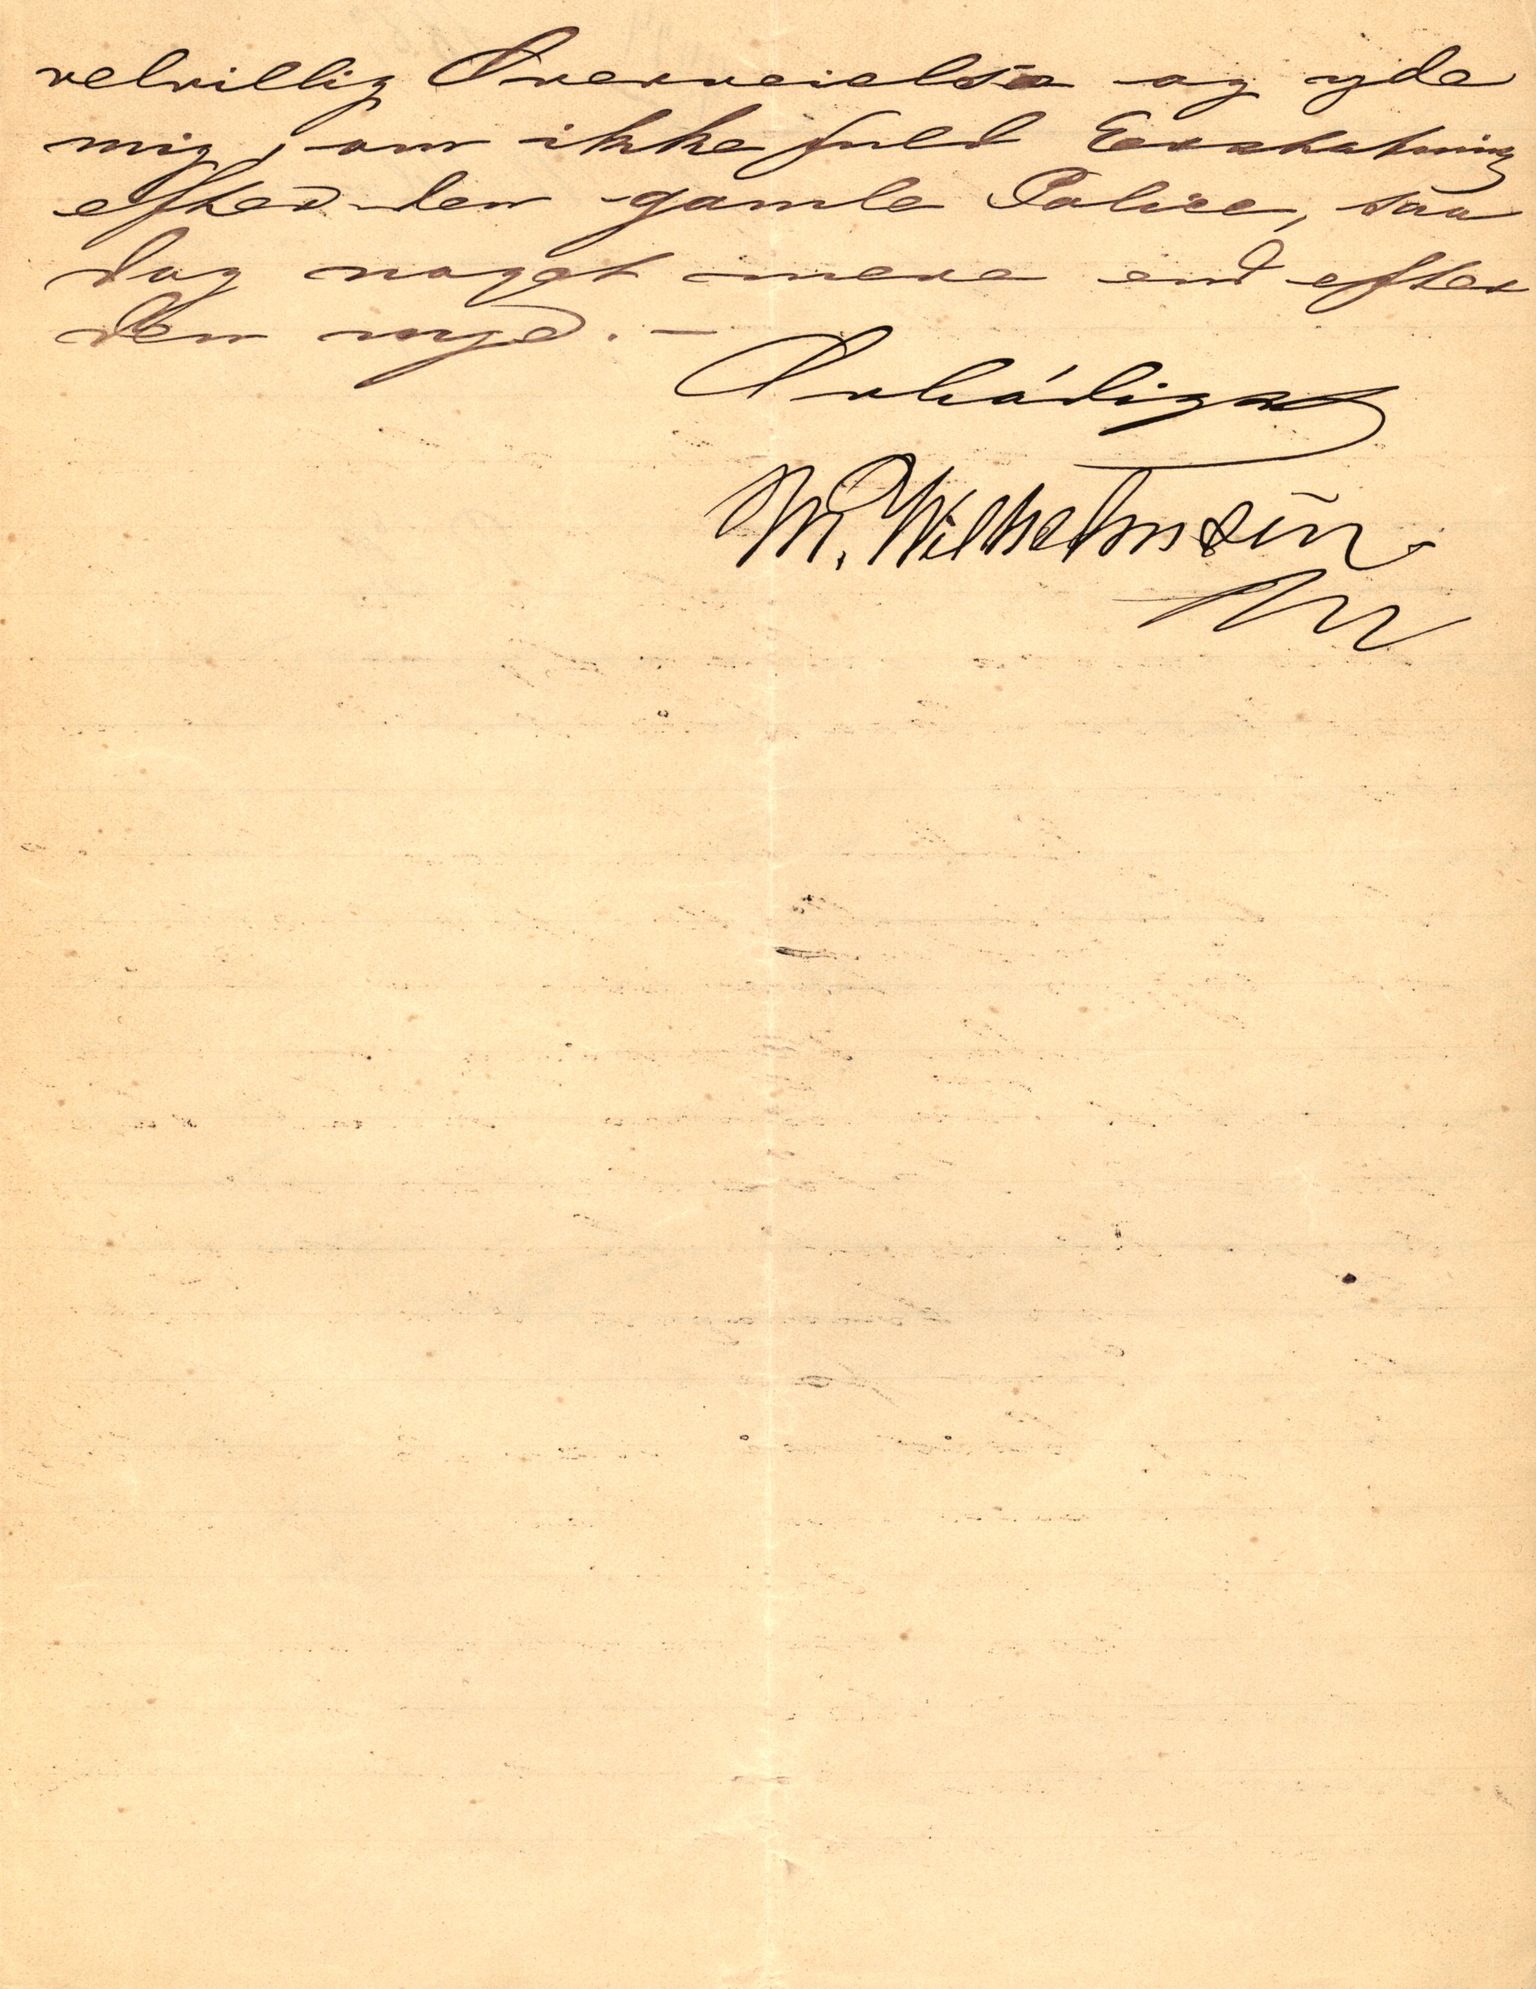 velvillig Overveielse og yde
mig, om ikke fuld Erstatning
efter den gamle Police, saa
dog noget mere end efter
den nye. —
Ærbødigst
M. Wilhelmsen.